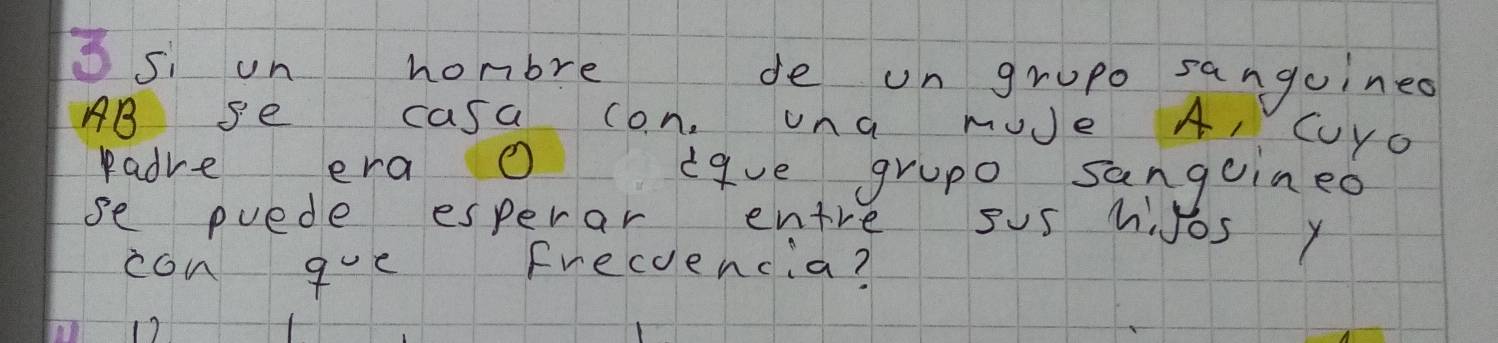 3 Si un hombre de un grupo sanguineo
AB se casa con. una muJe A, cuyo
padre era O ¿que grupo sanguineo
se puede esperar entre sus hiJos y
con que frecuencia?